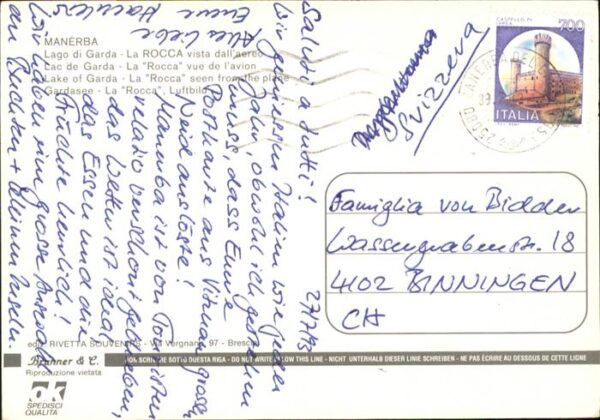 MANERBA
Lago di Garda - La ROCCA vista dall'aereo
Lac de Garda - La "Rocca" vue de l'avion
Lake of Garda - La "Rocca" seen from the plane
Gardasee - La "Rocca", Luftbild
CASTELLO DI
700
ITALIA
Svizzera
Famiglia von Bidder
Wassergrabenstr. 18
4102 BINNINGEN
CH
Saluti a tutti!
Wir geniessen Italien wie jedes
Jahr, obwohl ich gestehen
muss, dass Eure
Postkarte aus Vitznau grossen
Neid auslöste!
Manerba ist von Touristen
relativ verschont geblieben,
das Wetter ist ideal
das Essen und die
Früchte herrlich!
Wir haben eine grosse Auswahl
an Büchern + kleinen Inseln.
Alles Liebe
Eure
27/7/93
ediz. RIVETTA SOUVENIRS - Via Vergnano, 97 - Brescia
Brunner & C.
Riproduzione vietata
NON SCRIVERE SOTTO QUESTA RIGA - DO NOT WRITE BELOW THIS LINE - NICHT UNTERHALB DIESER LINIE SCHREIBEN - NE PAS ÉCRIRE AU DESSOUS DE CETTE LIGNE
ok
SPEDISCI
QUALITÀ